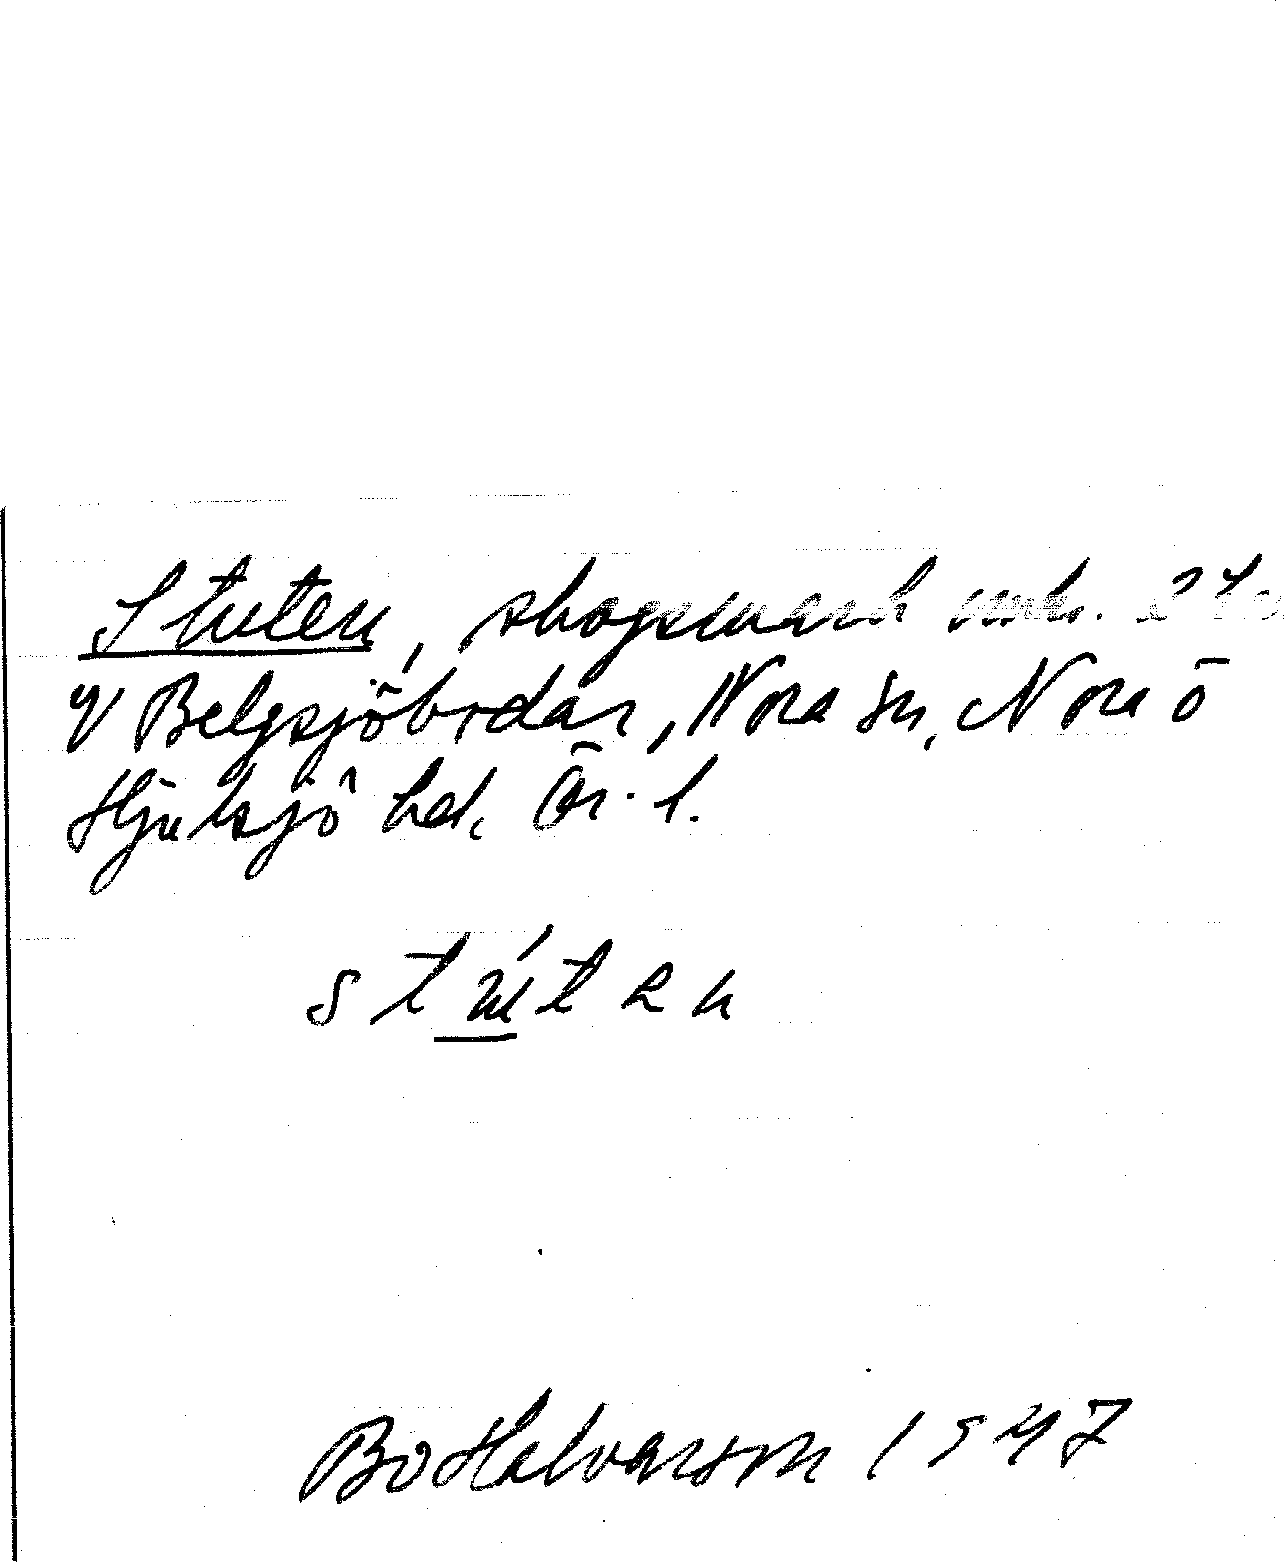 Stuten, skogsmark omkr. 2 km
V Belgsjöbodar, Nora sn, Nora o
Hjulsjö hd, Ör. l.
stúten
Bo Halvarson 1947